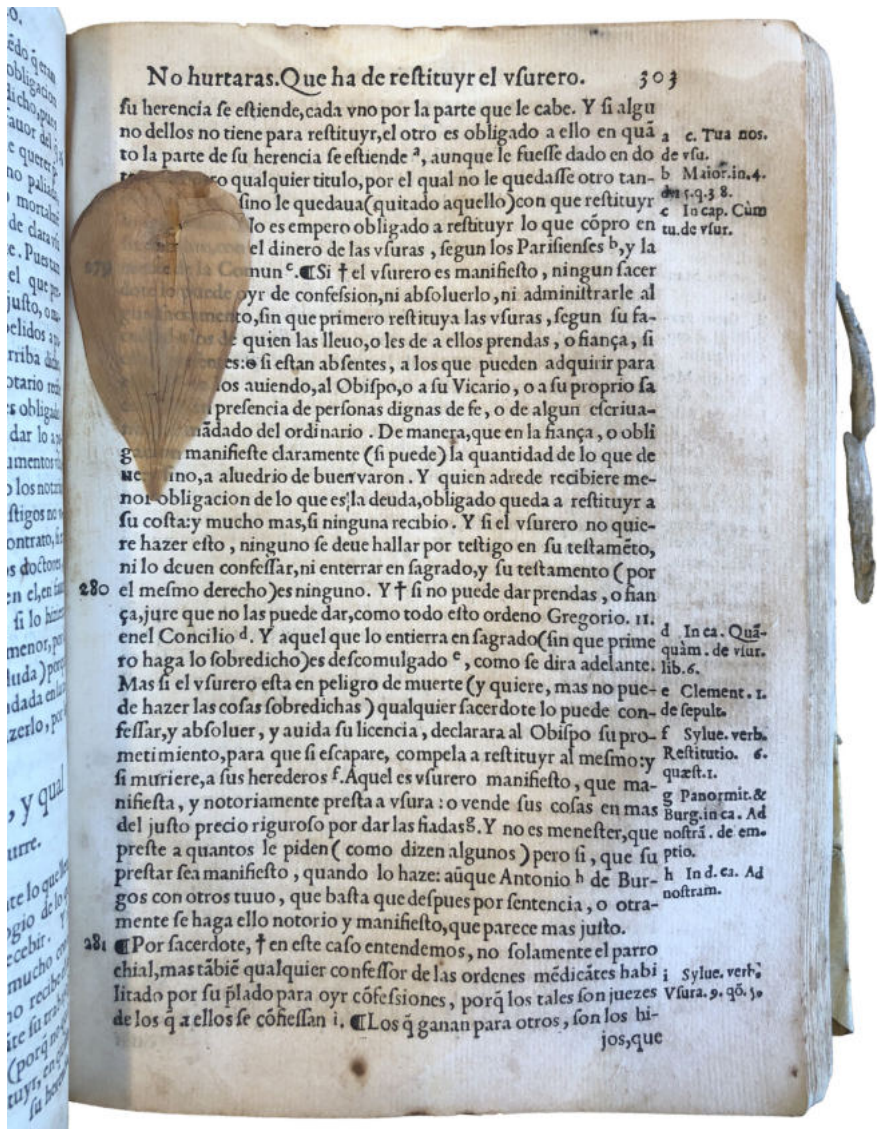 No hurtaras. Que ha de reſtituyr el vſurero. 303
ſu herencia ſe eſtiende, cada vno por la parte que le cabe. Y ſi algu
no dellos no tiene para reſtituyr, el otro es obligado a ello en quã
to la parte de ſu herencia ſe eſtiende a, aunque le fueſſe dado en do
qualquier titulo, por el qual no le quedaſſe otro tan-
ſino le quedaua (quitado aquello) con que reſtituyr
No es empero obligado a reſtituyr lo que cõpro
el dinero de las vſuras, ſegun los Pariſienſes b, y la
279 de la Comun c. ¶Si † el vſurero es manifieſto, ningun ſacer
dote lo puede oyr de confeſsion, ni abſoluerlo, ni adminiſtrarle al
ſin que primero reſtituya las vſuras, ſegun ſu fa-
de quien las lleuo, o les de a ellos prendas, o fiança, ſi
o ſi eſtan abſentes, a los que pueden adquirir para
auiendo, al Obiſpo, o a ſu Vicario, o a ſu proprio ſa
preſencia de perſonas dignas de fe, o de algun eſcriua-
mãdado del ordinario. De manera, que en la fiança, o obli
gacion manifieſte claramente (ſi puede) la quantidad de lo que de
a aluedrio de buen varon. Y quien adrede recibiere me-
nor obligacion de lo que es la deuda, obligado queda a reſtituyr a
ſu coſta: y mucho mas, ſi ninguna recibio. Y ſi el vſurero no quie-
re hazer eſto, ninguno ſe deue hallar por teſtigo en ſu teſtamẽto,
ni lo deuen confeſſar, ni enterrar en ſagrado, y ſu teſtamento (por
280 el meſmo derecho) es ninguno. Y † ſi no puede dar prendas, o fian
ça, jure que no las puede dar, como todo eſto ordeno Gregorio. 11.
enel Concilio d. Y aquel que lo entierra en ſagrado (ſin que prime
ro haga lo ſobredicho) es deſcomulgado e, como ſe dira adelante.
Mas ſi el vſurero eſta en peligro de muerte (y quiere, mas no pue-
de hazer las coſas ſobredichas) qualquier ſacerdote lo puede con-
feſſar, y abſoluer, y auida ſu licencia, declarara al Obiſpo ſu pro-
metimiento, para que ſi eſcapare, compela a reſtituyr al meſmo: y
ſi muriere, a ſus herederos f. Aquel es vſurero manifieſto, que ma-
nifieſta, y notoriamente preſta a vſura: o vende ſus coſas en mas
del juſto precio riguroſo por dar las fiadas g. Y no es meneſter, que
preſte a quantos le piden (como dizen algunos) pero ſi, que ſu
preſtar ſea manifieſto, quando lo haze: aũque Antonio h de Bur-
gos con otros tuuo, que baſta que deſpues por ſentencia, o otra-
mente ſe haga ello notorio y manifieſto, que parece mas juſto.
281 ¶Por ſacerdote, † en eſte caſo entendemos, no ſolamente el parro
chial, mas tãbiẽ qualquier confeſſor de las ordenes mẽdicãtes habi
litado por ſu p̃lado para oyr cõfeſsiones, porq̃ los tales ſon juezes
de los q̃ a ellos ſe cõfieſſan i. ¶Los q̃ ganan para otros, ſon los hi-
jos, que
a c. Tua nos.
de vſu.
b Maior. in. 4.
5. q. 38.
c In cap. Cùm
tu. de vſur.
d In ca. Quã-
quàm. de vſur.
lib. 6.
e Clement. 1.
de ſepult.
f Sylue. verb.
Reſtitutio. 6.
quæſt. 1.
g Panormit. &
Burg. in ca. Ad
noſtrã. de em-
ptio.
h In d. ca. Ad
noſtram.
i Sylue. verb.
Vſura. 9. qõ. 5.